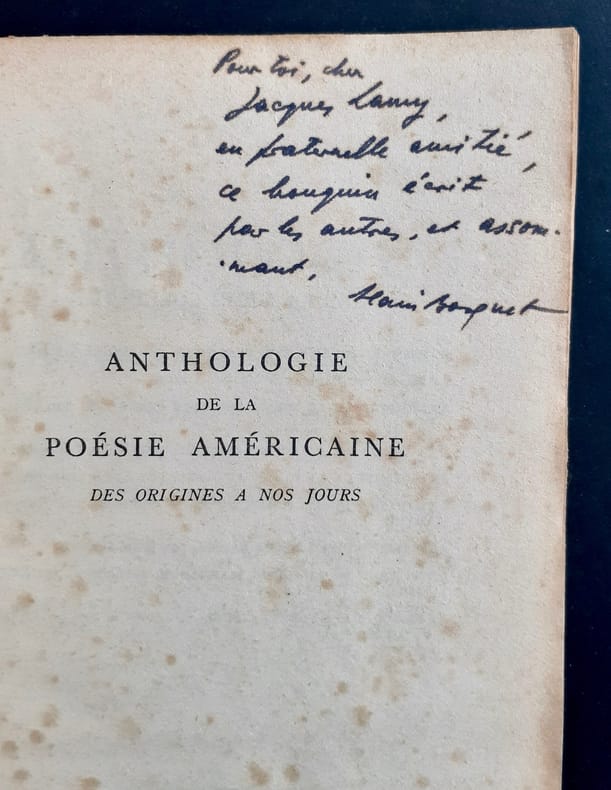 Pour toi, cher
Jacques Lamy,
en fraternelle amitié,
ce bouquin écrit
par les autres, et assom-
-mant,
Alain Bosquet
ANTHOLOGIE
DE LA
POÉSIE AMÉRICAINE
DES ORIGINES A NOS JOURS